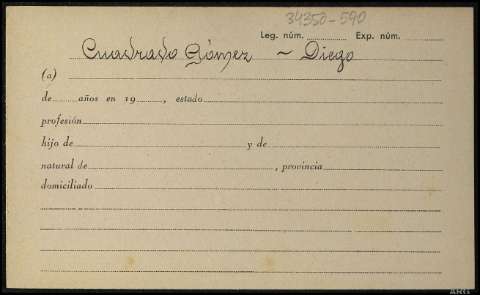 34350-590
Leg. núm. Exp. núm.
Cuadrado Gómez ~ Diego
(a)
de años en 19 , estado
profesión
hijo de y de
natural de , provincia
domiciliado